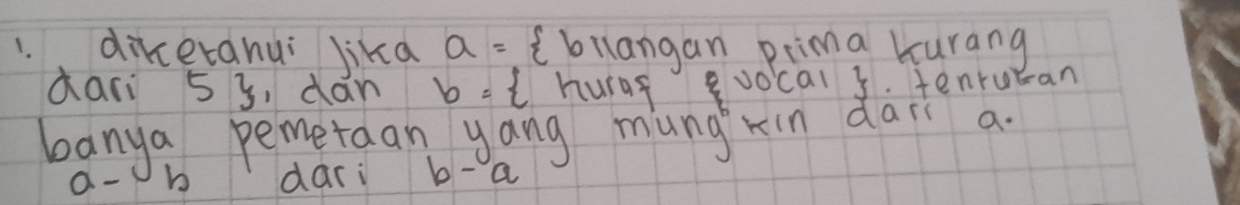 1. diketahui jika a = { bilangan prima kurang
dari 5 }, dan b = { huruf { vocal }. tentukan
banya pemetaan yang mungkin dari a.
a - b dari b - a